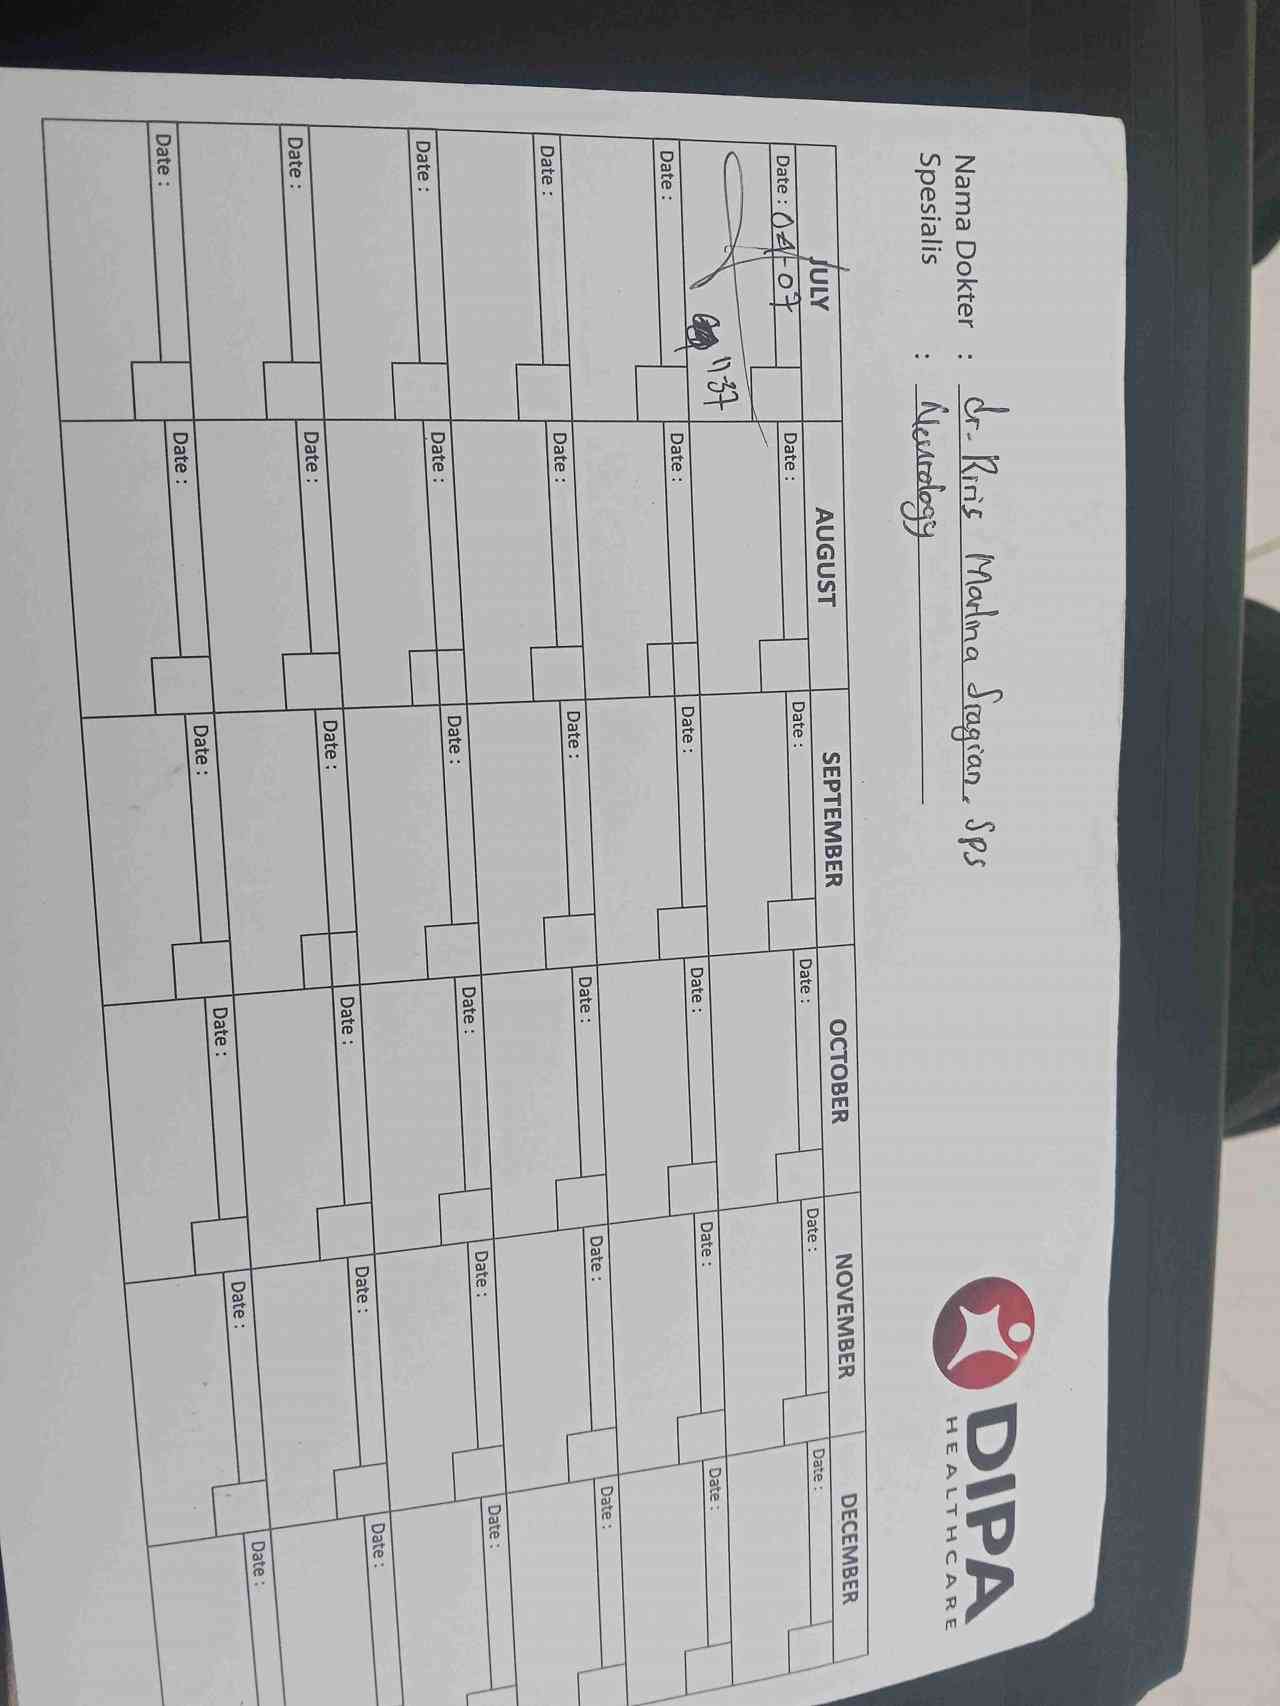 DIPA
HEALTHCARE
Nama Dokter : dr. Riris Marlina Siagian. Sps
Spesialis : Neurology
JULY AUGUST SEPTEMBER OCTOBER NOVEMBER DECEMBER
Date : 04-07 Date : Date : Date : Date : Date :
11-37
Date : Date : Date : Date : Date : Date :
Date : Date : Date : Date : Date : Date :
Date : Date : Date : Date : Date : Date :
Date : Date : Date : Date : Date : Date :
Date : Date : Date : Date : Date : Date :